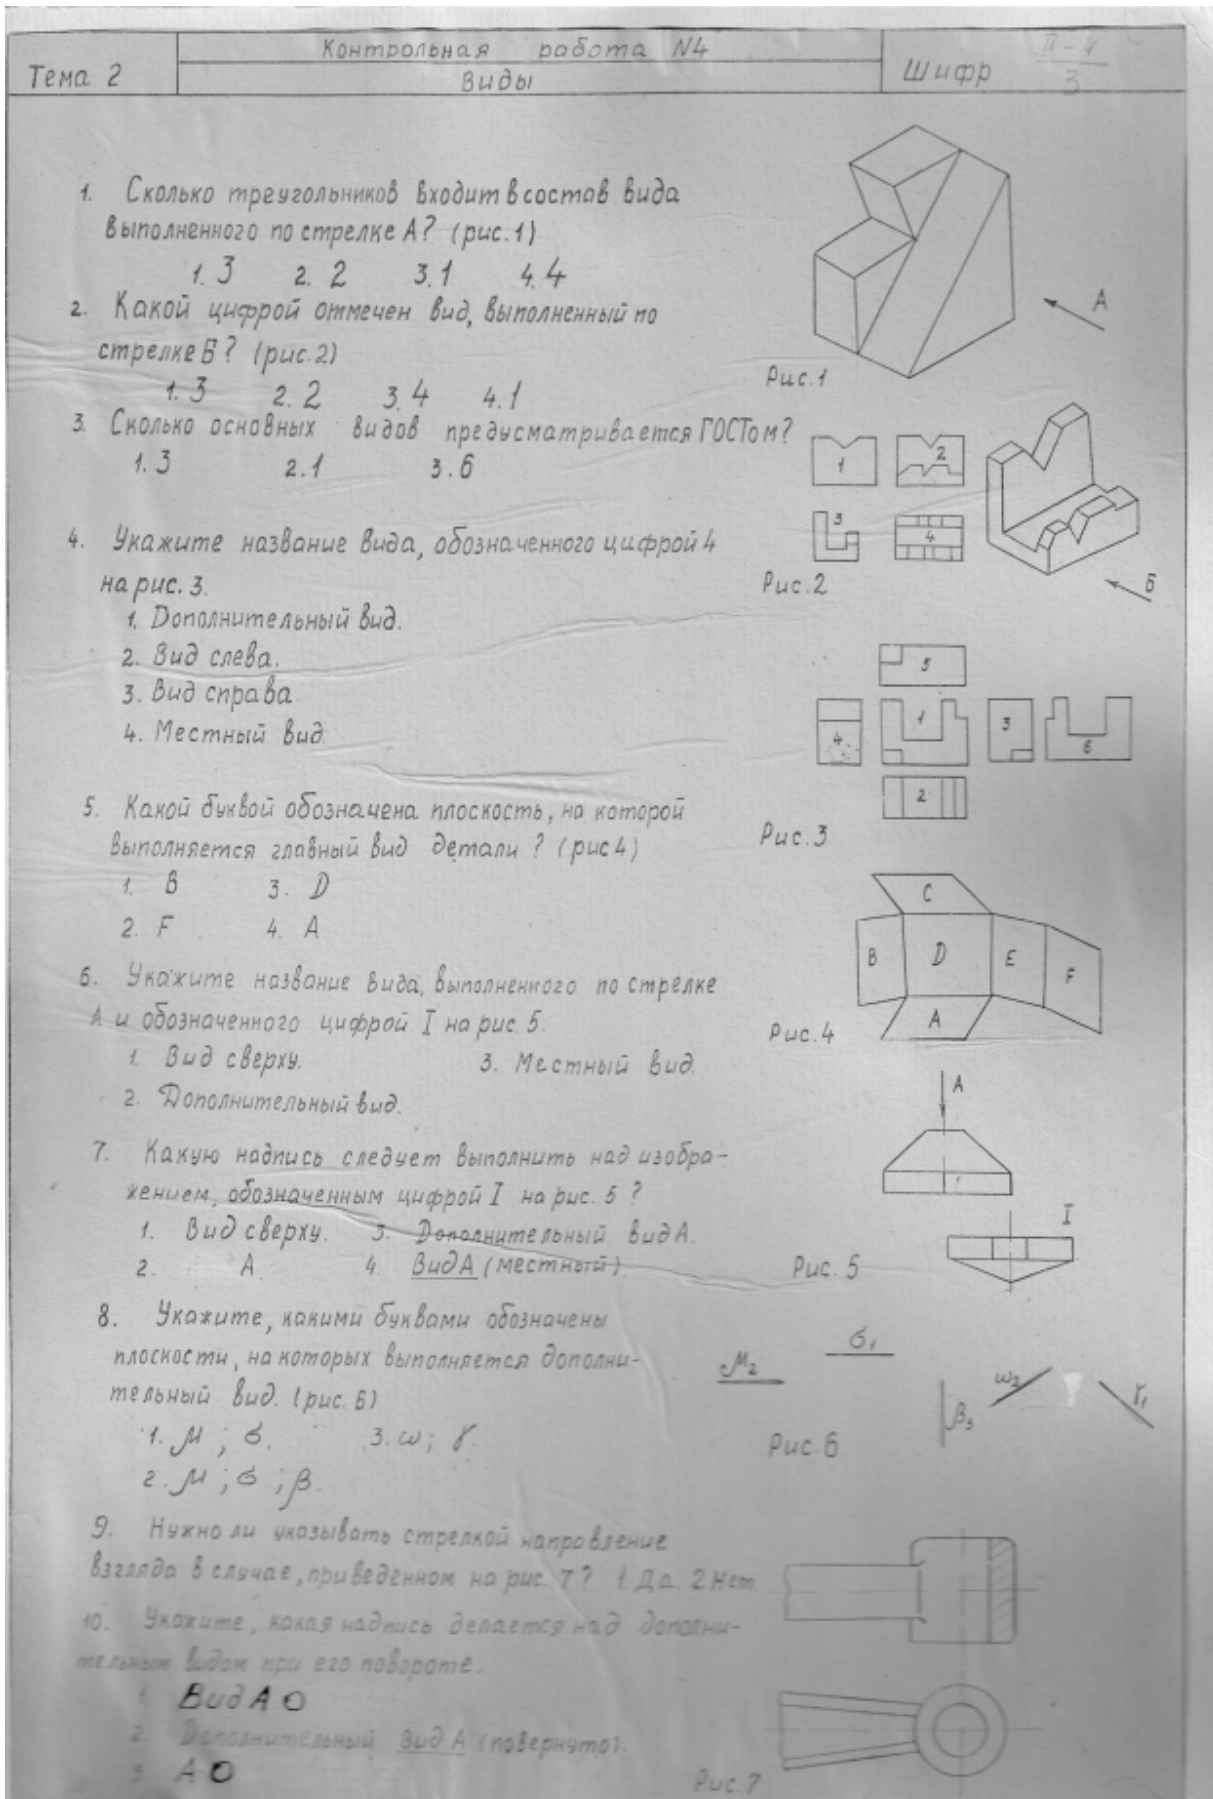 Контрольная работа N4
Тема 2
Виды
Шифр
II-4
3
1. Сколько треугольников входит в состав вида
выполненного по стрелке А? (рис. 1)
1. 3 2. 2 3. 1 4. 4
2. Какой цифрой отмечен вид, выполненный по
стрелке Б? (рис. 2)
1. 3 2. 2 3. 4 4. 1
3. Сколько основных видов предусматривается ГОСТом?
1. 3 2. 1 3. 6
4. Укажите название вида, обозначенного цифрой 4
на рис. 3.
1. Дополнительный вид.
2. Вид слева.
3. Вид справа
4. Местный вид.
5. Какой буквой обозначена плоскость, на которой
выполняется главный вид детали? (рис 4)
1. B 3. D
2. F 4. A
6. Укажите название вида, выполненного по стрелке
А и обозначенного цифрой I на рис. 5.
1. Вид сверху. 3. Местный вид.
2. Дополнительный вид.
7. Какую надпись следует выполнить над изобра-
жением, обозначенным цифрой I на рис. 5?
1. Вид сверху. 3. Дополнительный вид А.
2. А 4. Вид А (местный).
8. Укажите, какими буквами обозначены
плоскости, на которых выполняется дополни-
тельный вид. (рис. 6)
1. μ ; σ. 3. ω; γ.
2. μ ; σ ; β.
9. Нужно ли указывать стрелкой направление
взгляда в случае, приведенном на рис. 7? 1. Да 2. Нет.
10. Укажите, какая надпись делается над дополни-
тельным видом при его повороте.
1. Вид А О
2. Дополнительный вид А (повернуто).
3. А О
А
Рис. 1
1
2
3
4
Б
Рис. 2
5
4
1
3
6
2
Рис. 3
C
B
D
E
F
A
Рис. 4
А
I
Рис. 5
μ2
σ1
β3
ω2
γ1
Рис. 6
Рис. 7